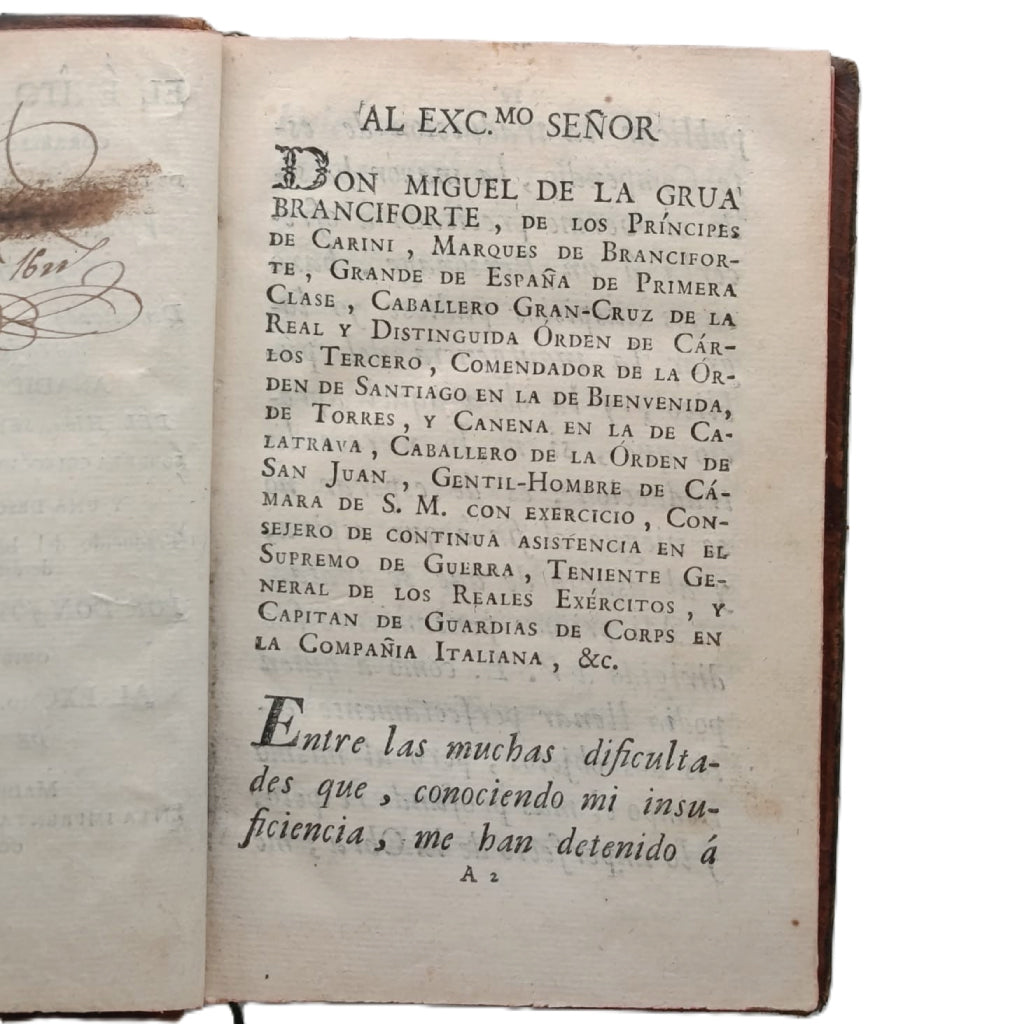 AL EXC.MO SEÑOR
DON MIGUEL DE LA GRUA
BRANCIFORTE , DE LOS PRÍNCIPES
DE CARINI , MARQUES DE BRANCIFOR-
TE , GRANDE DE ESPAÑA DE PRIMERA
CLASE , CABALLERO GRAN-CRUZ DE LA
REAL Y DISTINGUIDA ÓRDEN DE CÁR-
LOS TERCERO , COMENDADOR DE LA ÓR-
DEN DE SANTIAGO EN LA DE BIENVENIDA,
DE TORRES , Y CANENA EN LA DE CA-
LATRAVA , CABALLERO DE LA ÓRDEN DE
SAN JUAN , GENTIL-HOMBRE DE CÁ-
MARA DE S. M. CON EXERCICIO , CON-
SEJERO DE CONTINUA ASISTENCIA EN EL
SUPREMO DE GUERRA , TENIENTE GE-
NERAL DE LOS REALES EXÉRCITOS , Y
CAPITAN DE GUARDIAS DE CORPS EN
LA COMPAÑIA ITALIANA , &c.
Entre las muchas dificulta-
des que , conociendo mi insu-
ficiencia , me han detenido á
A 2